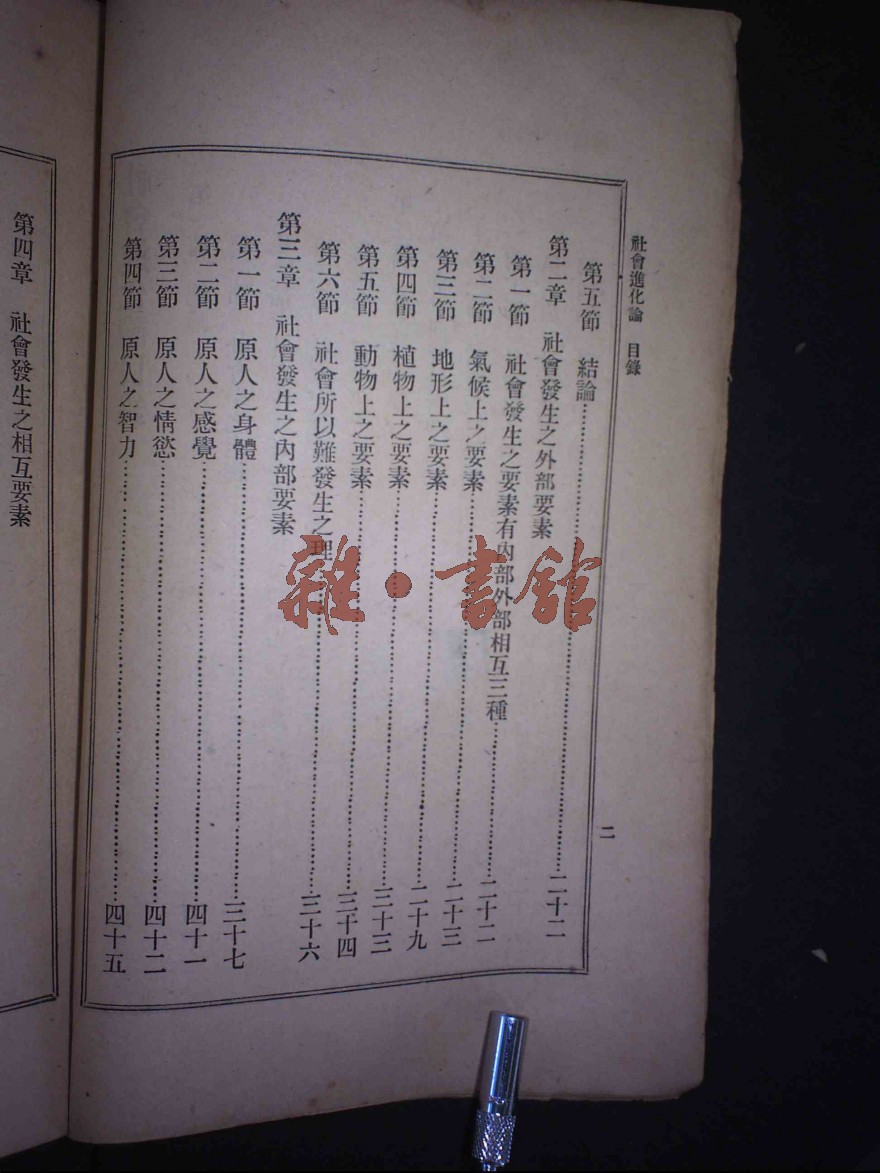 社會進化論　目錄
二
第五節　結論……二十二
第二章　社會發生之外部要素
第一節　社會發生之要素有內部外部相互三種……二十二
第二節　氣候上之要素……二十三
第三節　地形上之要素……二十九
第四節　植物上之要素……三十三
第五節　動物上之要素……三十四
第六節　社會所以難發生之理……三十六
第三章　社會發生之內部要素
第一節　原人之身體……三十七
第二節　原人之感覺……四十一
第三節　原人之情慾……四十二
第四節　原人之智力……四十五
第四章　社會發生之相互要素
雜·書館